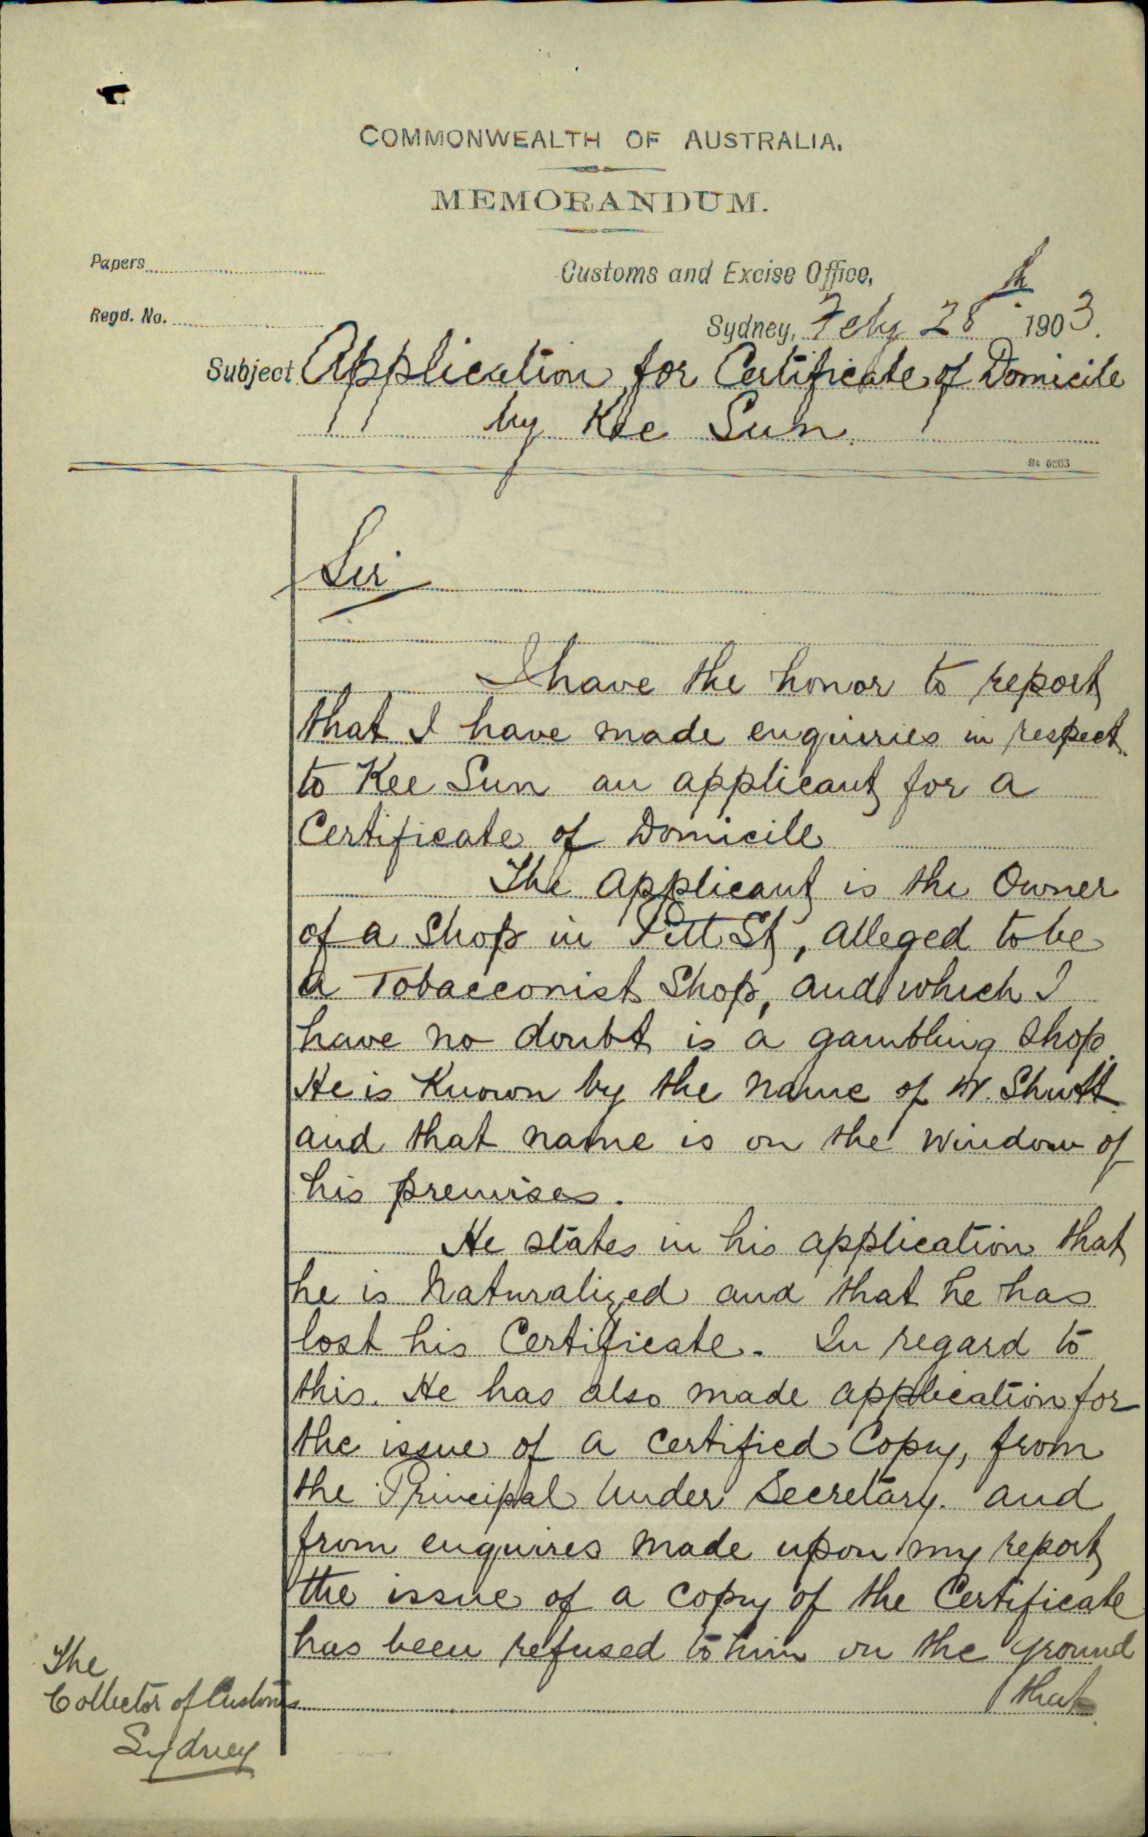 COMMONWEALTH OF AUSTRALIA.
MEMORANDUM.
Papers
Customs and Excise Office,
Regd. No.
Sydney, Feby 28th 1903.
Subject Application for Certificate of Domicile
by Kee Sun.
Sir
I have the honor to report
that I have made enquiries in respect
to Kee Sun an applicant for a
Certificate of Domicile
The applicant is the Owner
of a Shop in Pitt St, alleged to be
a Tobacconist Shop, and which I
have no doubt is a gambling shop.
He is Known by the name of W. Shutt
and that name is on the window of
his premises.
He states in his application that
he is Naturalized and that he has
lost his Certificate. In regard to
this. He has also made application for
the issue of a certified Copy, from
the Principal Under Secretary. and
from enquires made upon my report
the issue of a copy of the Certificate
has been refused to him on the ground
that
The
Collector of Customs
Sydney